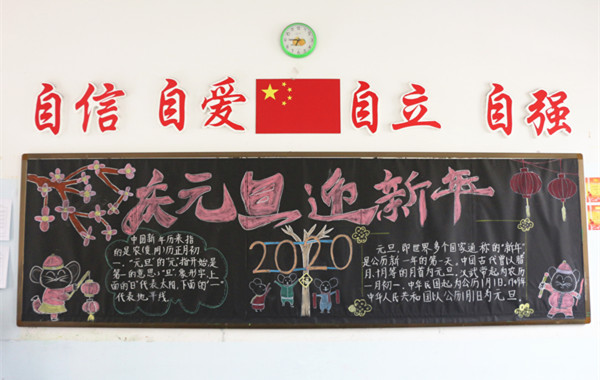 自信 自爱 自立 自强
庆元旦迎新年
2020
中国新年历来指
的是农(夏、阴)历正月初
一。“元旦”的“元”指开始,是
第一的意思;“旦”象形字,上
面的“日”代表太阳,下面的“一”
代表地平线。
元旦,即世界多个国家通称的“新年”
是公历新一年的第一天。中国古代曾以腊
月、十月等的月首为元旦,汉武帝起为农历
一月初一,中华民国起为公历1月1日,1949年
中华人民共和国以公历1月1日为元旦。